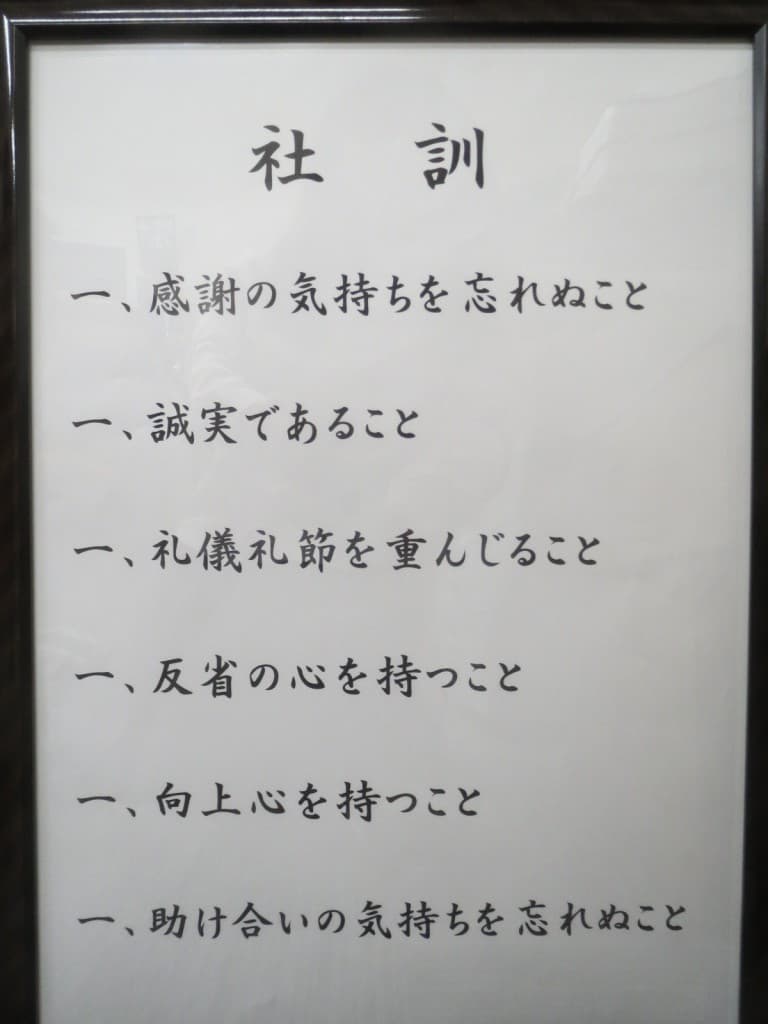 社 訓
一、感謝の気持ちを忘れぬこと
一、誠実であること
一、礼儀礼節を重んじること
一、反省の心を持つこと
一、向上心を持つこと
一、助け合いの気持ちを忘れぬこと